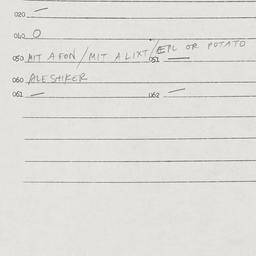 020 —
040 O
050 MIT A FON / MIT A LIXT / EPL OR POTATO
051 —
060 ALESHIKER
061 — 062 —